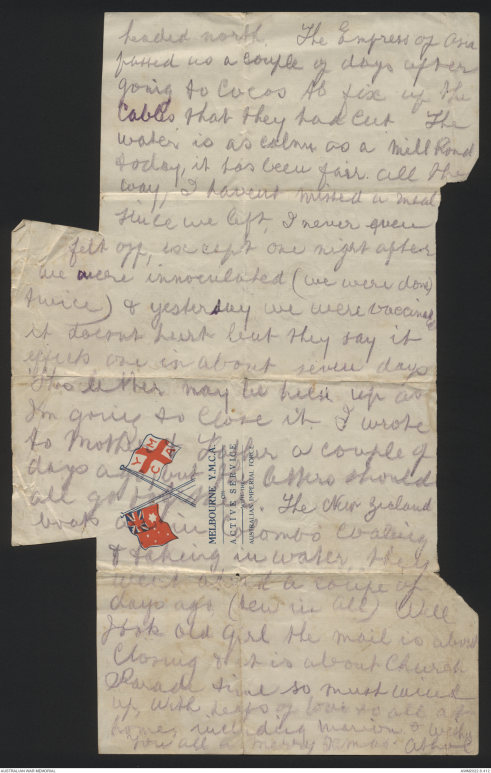 headed north The Empress of Asia
passed us a couple of days after
going to Cocos to fix up the
Cables that they had cut The
water is as calm as a Mill Pond
today, it has been fair all the
way, I havent missed a meal
since we left, I never even
felt off, except one night after
we were innoculated (we were done
twice) & yesterday we were vaccinated
it doesnt hurt but they say it
effects one in about seven days
This letter may be held up as
I'm going to close it. I wrote
to Mother & a couple of
days ago but the letters should
all go The New Zealand
boats are in Colombo coaling
& taking in water they
went a couple of
days ago (ten in all) Well
old girl the mail is about
Closing & it is about Church
Parade time so must wind
up, with heaps of love to all at
home, including Marion & wish
you all a merry Xmas Athol
Y M C A
MELBOURNE, Y.M.C.A.
WITH
ACTIVE SERVICE
AUSTRALIAN IMPERIAL FORCE
AUSTRALIAN WAR MEMORIAL